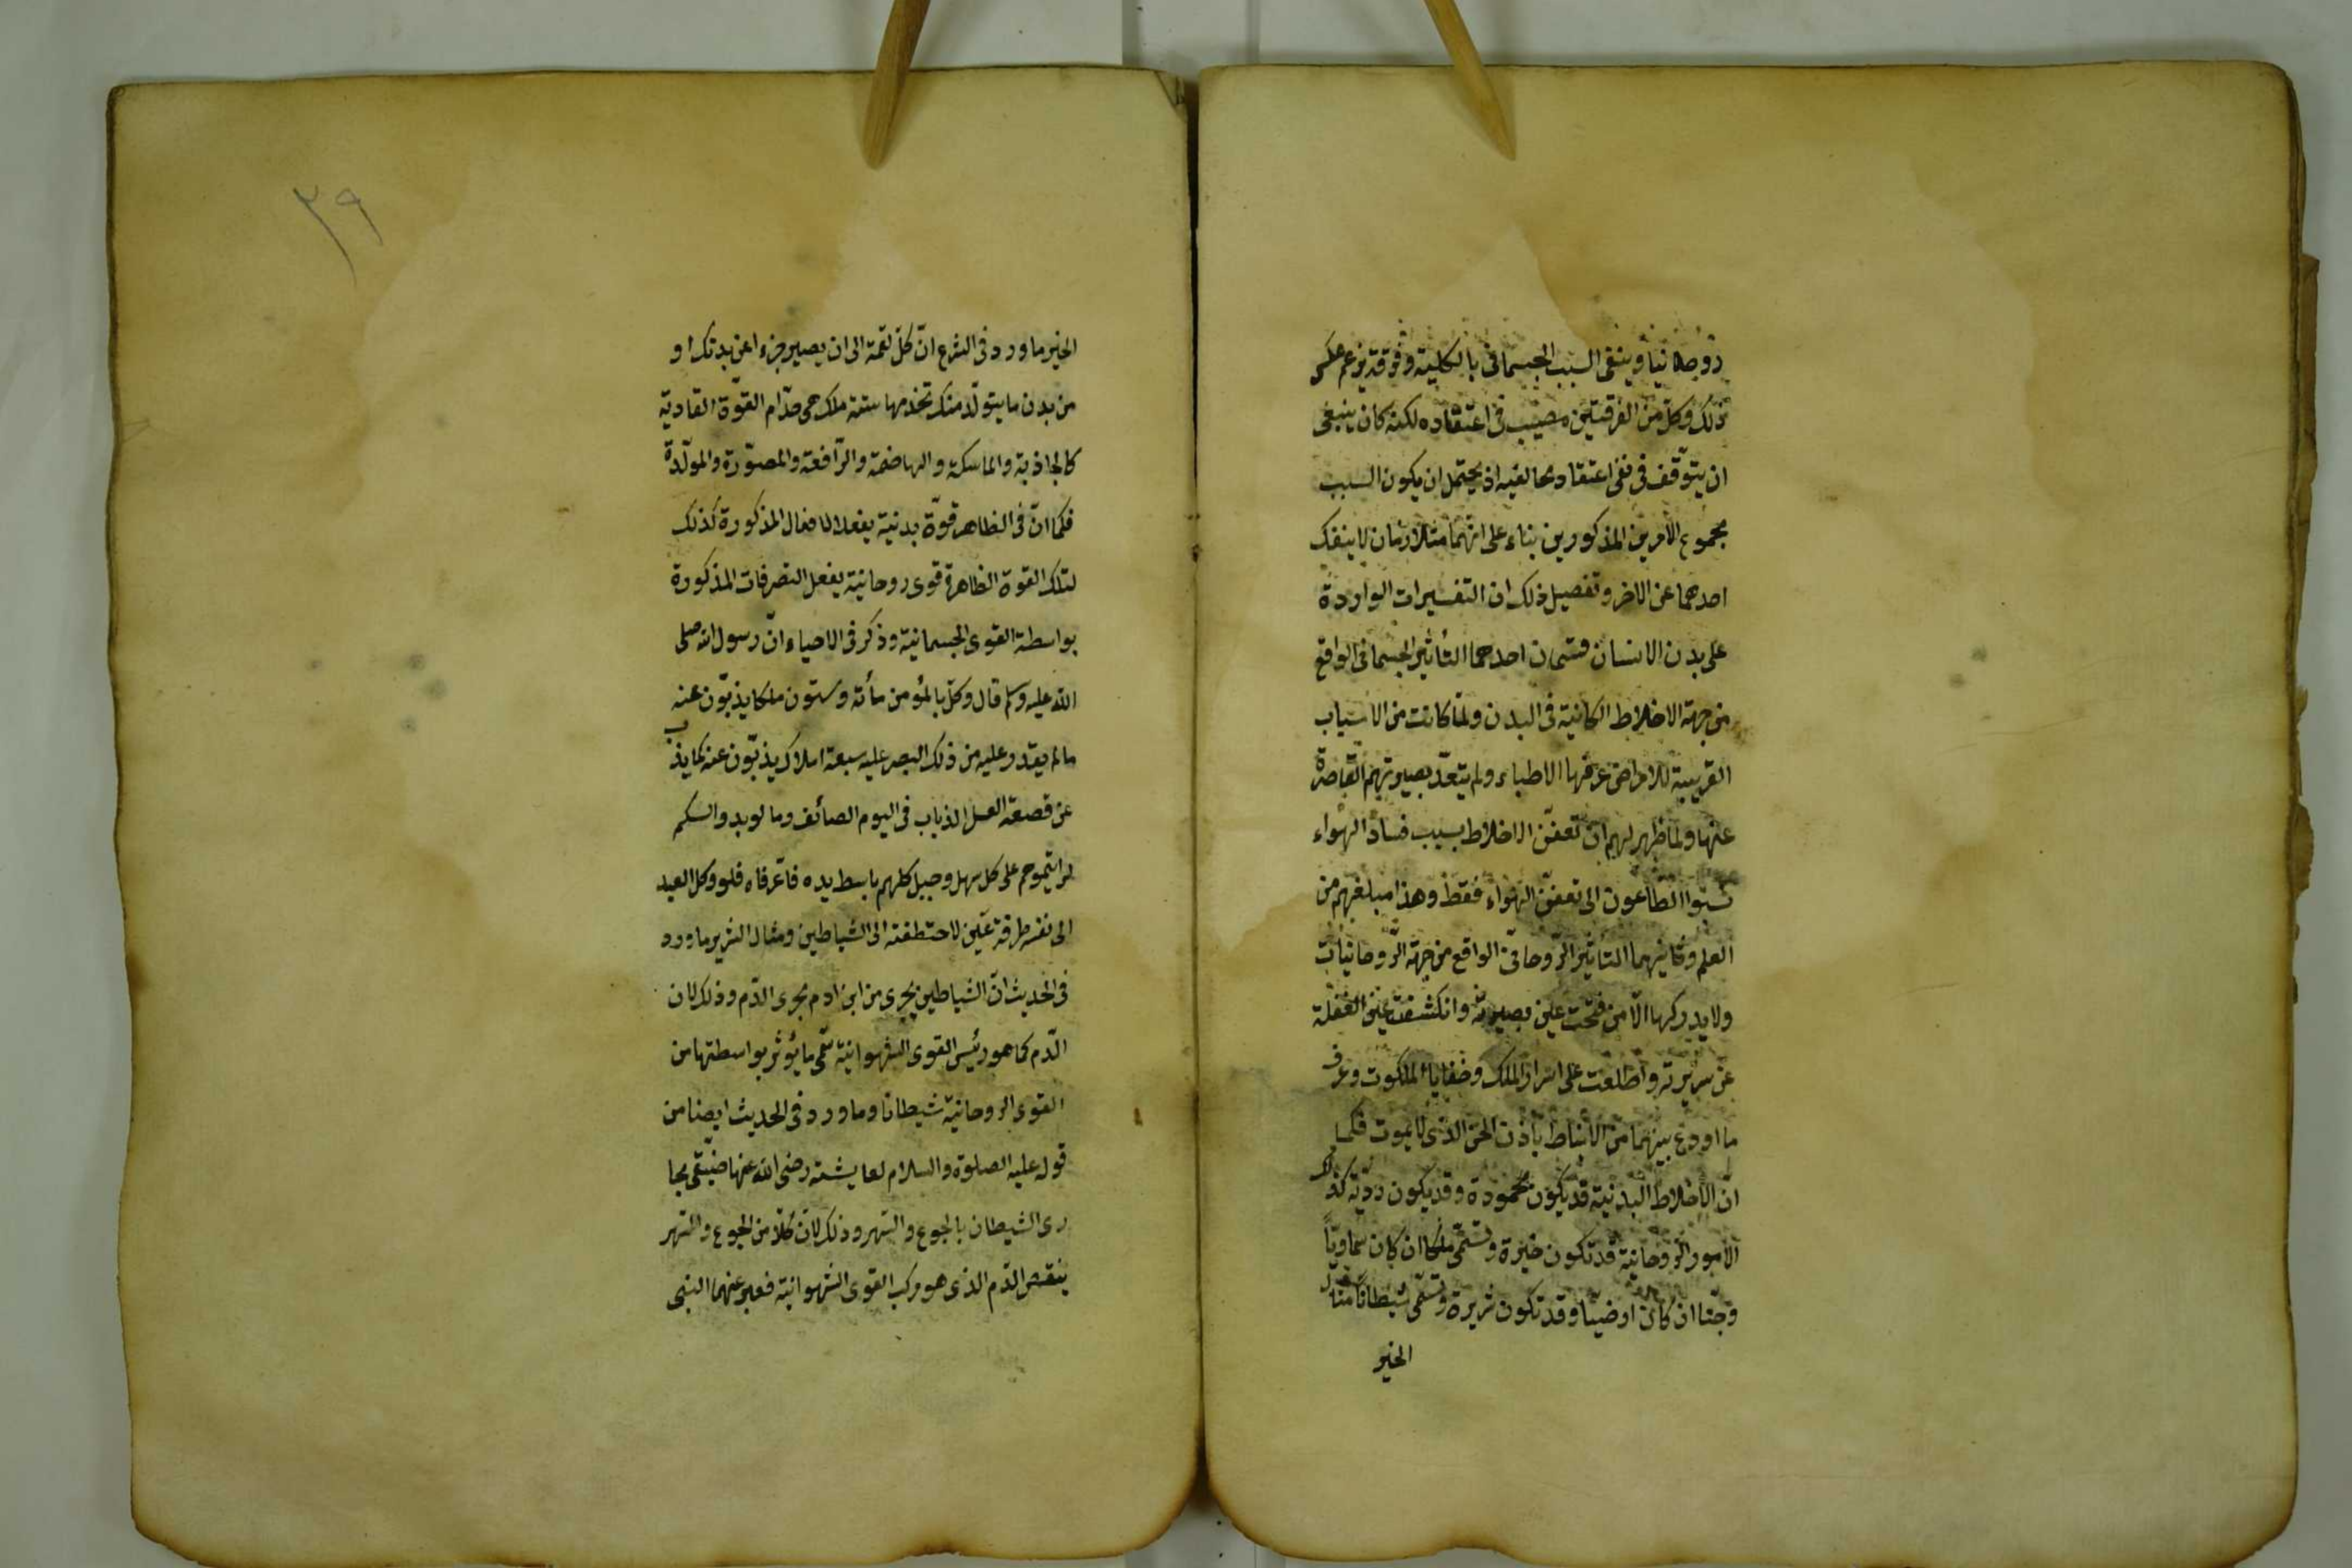 روحانيا وينفى السبب الجسمانى بالكلية وفرقة يزعم عكس
ذلك وكل من الفرقتين مصيب فى اعتقاده لكنه كان ينبغى
ان يتوقف فى نفى اعتقاد مخالفيه اذ يحتمل ان يكون السبب
مجموع الامرين المذكورين بناء على انهما متلازمان لا ينفك
احدهما عن الاخر وتفصيل ذلك ان التغييرات الواردة
على بدن الانسان قسمان احدهما التأثير الجسمانى الواقع
من جهة الاخلاط الكائنة فى البدن ولما كانت من الاسباب
القريبة للامراض عرفها الاطباء ولم يتعد بصيرتهم القاصرة
عنها ولما ظهر لهم ان تعفن الاخلاط بسبب فساد الهواء
نسبوا الطاعون الى تعفن الهواء فقط وهذا مبلغهم من
العلم وثانيهما التأثير الروحانى الواقع من جهة الروحانيات
ولا يدركها الا من فتحت عين بصيرته وانكشفت عين الغفلة
عن سريرته واطلعت على اسرار الملك وخفايا الملكوت وعرف
ما اودع بينهما من الارتباط باذن الحى الذى لا يموت فكما
ان الاخلاط البدنية قد يكون محمودة وقد يكون رديّة كذلك
الامور الروحانية قد تكون خيرة وتسمى ملكا ان كان سماويّاً
وجنّا ان كان ارضيّا وقد تكون شريرة وتسمى شيطاناً مثال
الخير
٣٩
الخير ما ورد فى الشرع انّ كلّ لقمة الى ان يصير جزءا عن بدنك او
من بدن ما يتولّد منك تخدمها ستة ملك هى خدّام القوّة الغاديّة
كالجاذبة والماسكة والهاضمة والدّافعة والمصوّرة والمولّدة
فكما انّ فى الظاهر قوّة بدنية يفعل الافعال المذكورة كذلك
لتلك القوة الظاهرة قوى روحانية يفعل التصرفات المذكورة
بواسطة القوى الجسمانية وذكر فى الاحياء انّ رسول الله صلى
الله عليه وسلم قال وكّل بالمؤمن مأئة وستون ملكا يذبّون عنه
مالم يقدر عليه من ذلك البصر عليه سبعة املاك يذبّون عنه كما يذب
عن قصعة العسل الذباب فى اليوم الصائف وما لو بدوا لكم
لرايتموهم على كل سهل وجبل كلهم باسط يده فاغرفاه فلو وكل العبد
الى نفسه طرفة عين لاختطفته الى الشياطين ومثال الشرير ما ورد
فى الحديث انّ الشياطين يجرى من ابن ادم مجرى الدّم وذلك لان
الدّم كما هو رئيس القوى الشهوانية سمّى ما يؤثر بواسطتها من
القوى الروحانية شيطانا وما ورد فى الحديث ايضا من
قوله عليه الصلوة والسلام لعايشة رضى الله عنها ضيّقى مجا
رى الشيطان بالجوع والسّهر وذلك لانّ كلّا من الجوع والسّهر
ينقص الدّم الذى هو مركب القوى الشهوانية فعبر عنهما النبى